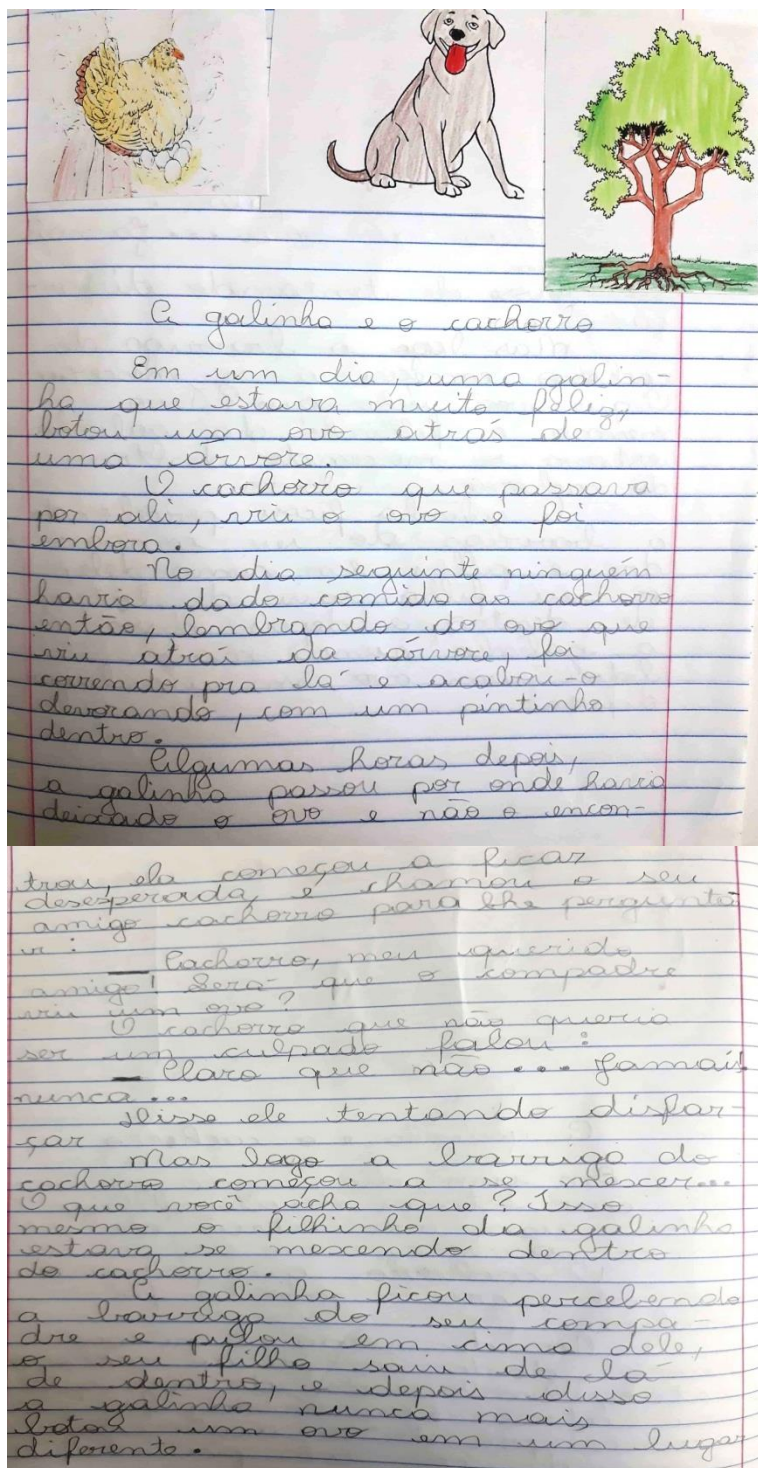 A galinha e o cachorro
Em um dia, uma galin-
ha que estava muito feliz,
botou um ovo atrás de
uma árvore.
O cachorro que passava
por ali, viu o ovo e foi
embora.
No dia seguinte ninguém
havia dado comida ao cachorro
então, lembrando do ovo que
viu atraí da árvore, foi
correndo pra lá e acabou-o
devorando, com um pintinho
dentro.
Algumas horas depois,
a galinha passou por onde havia
deixado o ovo e não o encon-
trou, ela começou a ficar
desesperada, e chamou o seu
amigo cachorro para lhe pergunta
r:
— Cachorro, meu querido
amigo! Será que o compadre
viu um ovo?
O cachorro que não queria
ser um culpado falou:
— Claro que não... Jamais
nunca...
Disse ele tentando disfar-
çar
Mas logo a barriga do
cachorro começou a se mexer...
O que você acha que? Isso
mesmo o filhinho da galinha
estava se mexendo dentro
do cachorro.
A galinha ficou percebendo
a barriga do seu compa-
dre e pulou em cima dele,
o seu filho saiu de lá
de dentro, e depois disso
a galinha nunca mais
botou um ovo em um lugar
diferente.